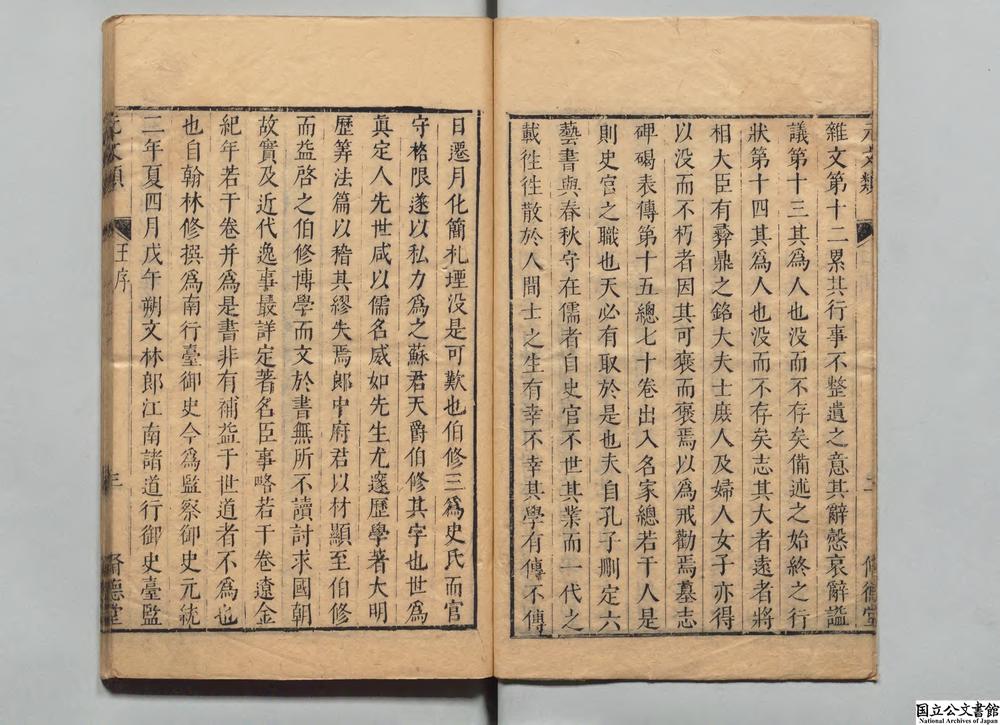 雜文第十二累其行事不整遺之意其辭慤哀辭謚
議第十三其為人也没而不存矣備述之始終之行
狀第十四其為人也没而不存矣志其大者遠者將
相大臣有彝鼎之銘大夫士庻人及婦人女子亦得
以没而不朽者因其可褒而褒焉以為戒勸焉墓志
碑碣表傳第十五總七十卷出入名家總若干人是
則史官之職也天必有取於是也夫自孔子删定六
藝書與春秋守在儒者自史官不世其業而一代之
載徃徃散於人間士之生有幸不幸其學有傳不傳
元文類
二
脩德堂
日遷月化簡札堙没是可歎也伯修三為史氏而官
守格限遂以私力為之蘇君天爵伯修其字也世為
真定人先世咸以儒名威如先生尤邃歷學著大明
歷筭法篇以稽其繆失焉郎中府君以材顯至伯修
而益啓之伯修博學而文於書無所不讀討求國朝
故實及近代逸事最詳定著名臣事略若干卷遼金
紀年若干卷并為是書非有補益于世道者不為也
也自翰林修撰為南行臺御史今為監察御史元統
二年夏四月戊午朔文林郎江南諸道行御史臺監
元文類
王序
三
脩德堂
国立公文書館
National Archives of Japan